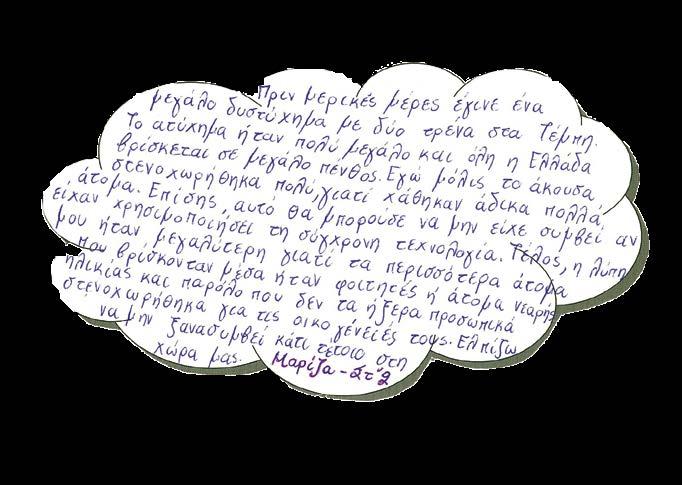 Πριν μερικές μέρες έγινε ένα
μεγάλο δυστύχημα με δύο τρένα στα Τέμπη.
Το ατύχημα ήταν πολύ μεγάλο και όλη η Ελλάδα
βρίσκεται σε μεγάλο πένθος. Εγώ μόλις το άκουσα,
στενοχωρήθηκα πολύ, γιατί χάθηκαν άδικα πολλά
άτομα. Επίσης, αυτό θα μπορούσε να μην είχε συμβεί αν
είχαν χρησιμοποιήσει τη σύγχρονη τεχνολογία. Τέλος, η λύπη
μου ήταν μεγαλύτερη γιατί τα περισσότερα άτομα
που βρίσκονταν μέσα ήταν φοιτητές ή άτομα νεαρής
ηλικίας και παρόλο που δεν τα ήξερα προσωπικά
στενοχωρήθηκα για τις οικογένειές τους. Ελπίζω
να μην ξανασυμβεί κάτι τέτοιο στη
χώρα μας.
Μαρίζα - Στ'2